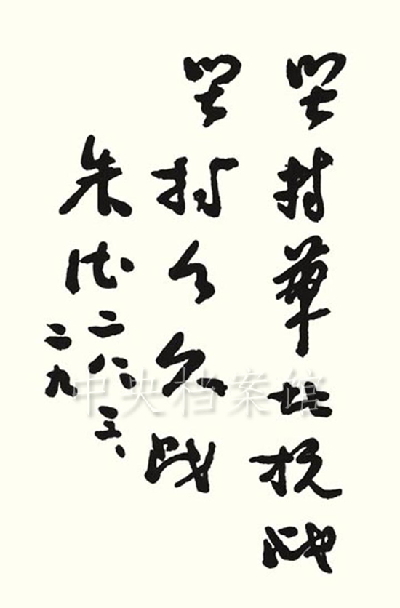 坚持華北抗战
坚持々久战
朱德
二八、三、
二九
中央档案馆